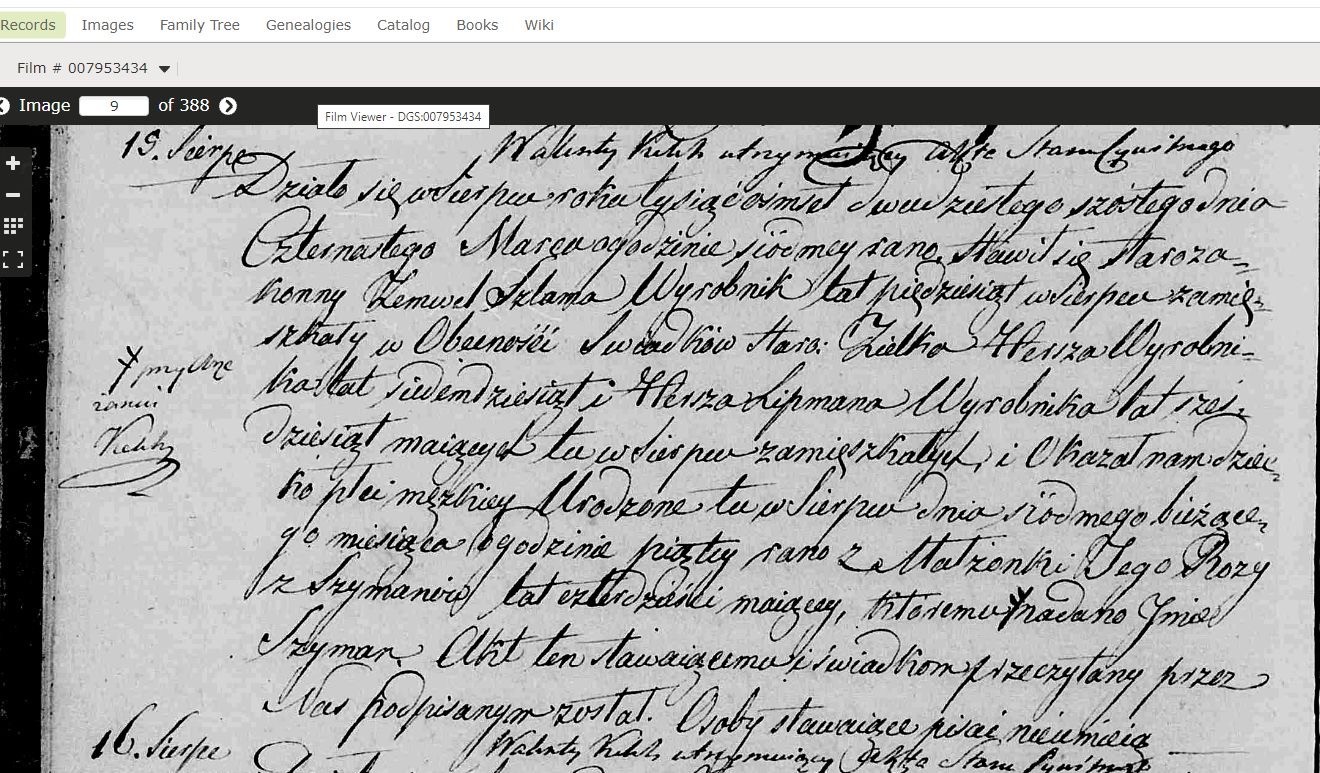 Records Images Family Tree Genealogies Catalog Books Wiki
Film # 007953434
Image 9 of 388
Film Viewer - DGS:007953434
15. Sierpc Walenty Kulik utrzymuiący Akta Stanu Cywilnego
Działo się w Sierpcu roku tysiąć ośmset dwudziestego szóstego dnia
Czternastego Marca o godzinie siódmey rano, stawił się staroza-
konny Zemwel Szlama Wyrobnik lat piędziesiąt w Sierpcu zamię-
szkały w Obecności Swiadków Staro: Zielka Hersza Wyrobni-
ka lat siedemdziesiąt i Hersza Lipmana Wyrobnika lat sześ-
dziesiąt maiących tu w Sierpcu zamięszkałych, i Okazał nam dziec-
ko płci męzkiey Urodzone tu w Sierpcu dnia siódmego bieżące-
go miesiąca o godzinie piątey rano z Małżonki Jego Rozy
z Szymanów lat czterdzieści maiącey, któremu nadano Jmie
Szyman. Akt ten stawaiącemu i świadkom przeczytany przez
Nas podpisanym został. Osoby stawaiące pisać nieumieią
Walenty Kulik utrzymuiący Akta Stanu Cywilnego
16. Sierpc